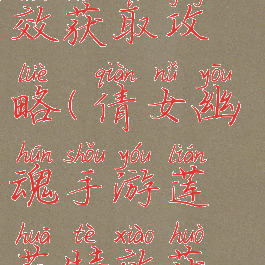 效获取攻
lüè qiàn nǚ yōu
略(倩女幽
hún shǒu yóu lián
魂手游莲
huā tè xiào huò
花特效获